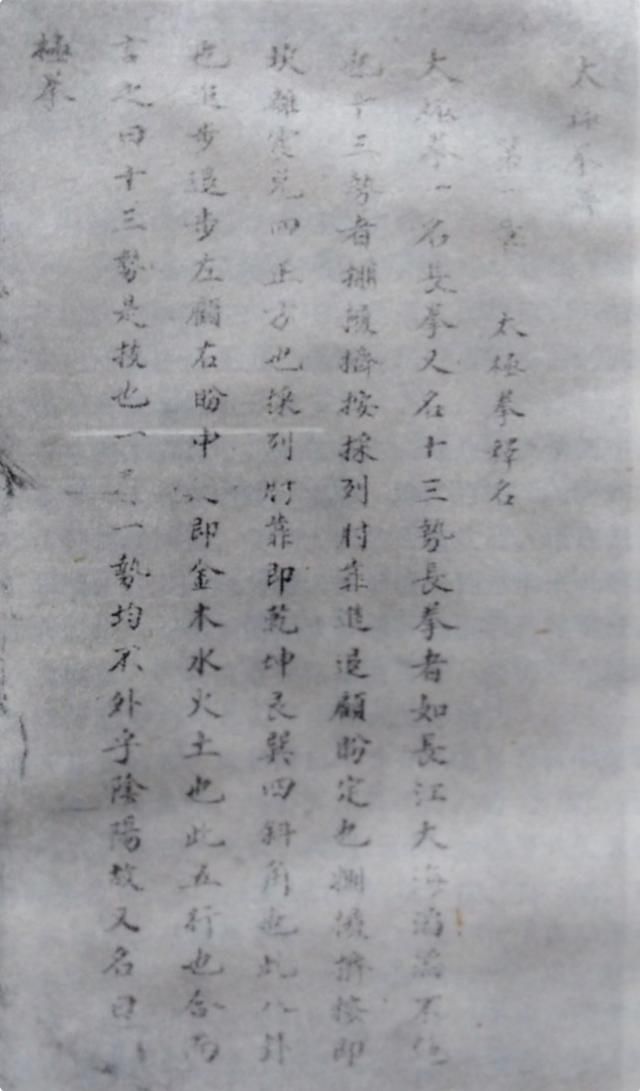 太極拳
第一 太極拳釋名
太極拳一名長拳又名十三勢長拳者如長江大海滔滔不
也十三勢者掤擠按採列肘靠進退顧盼定也掤按即
坎離震兌四正方也採列肘靠即乾坤艮巽四斜角也此八卦
也進步退步左顧右盼中即金木水火土也此五行也合而
言之曰十三勢是技也一一勢均不外乎陰陽故又名曰
極拳